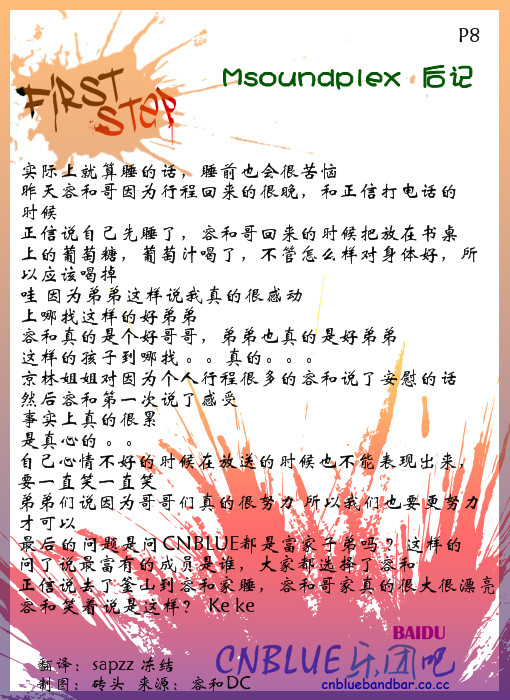 P8
Msoundplex 后记
FiRST
STeP
实际上就算睡的话，睡前也会很苦恼
昨天容和哥因为行程回来的很晚，和正信打电话的
时候
正信说自己先睡了，容和哥回来的时候把放在书桌
上的葡萄糖，葡萄汁喝了，不管怎么样对身体好，所
以应该喝掉
哇 因为弟弟这样说我真的很感动
上哪找这样的好弟弟
容和真的是个好哥哥，弟弟也真的是好弟弟
这样的孩子到哪找。。真的。。。
京林姐姐对因为个人行程很多的容和说了安慰的话
然后容和第一次说了感受
事实上真的很累
是真心的。。
自己心情不好的时候在放送的时候也不能表现出来，
要一直笑一直笑
弟弟们说因为哥哥们真的很努力 所以我们也要更努力
才可以
最后的问题是问CNBLUE都是富家子弟吗？这样的
问了说最富有的成员是谁，大家都选择了容和
正信说去了釜山到容和家睡，容和哥家真的很大很漂亮
容和笑着说是这样？ Ke ke
BAIDU
CNBLUE乐团吧
cnbluebandbar.co.cc
翻译：sapzz 冻结
制图：砖头 来源：容和DC